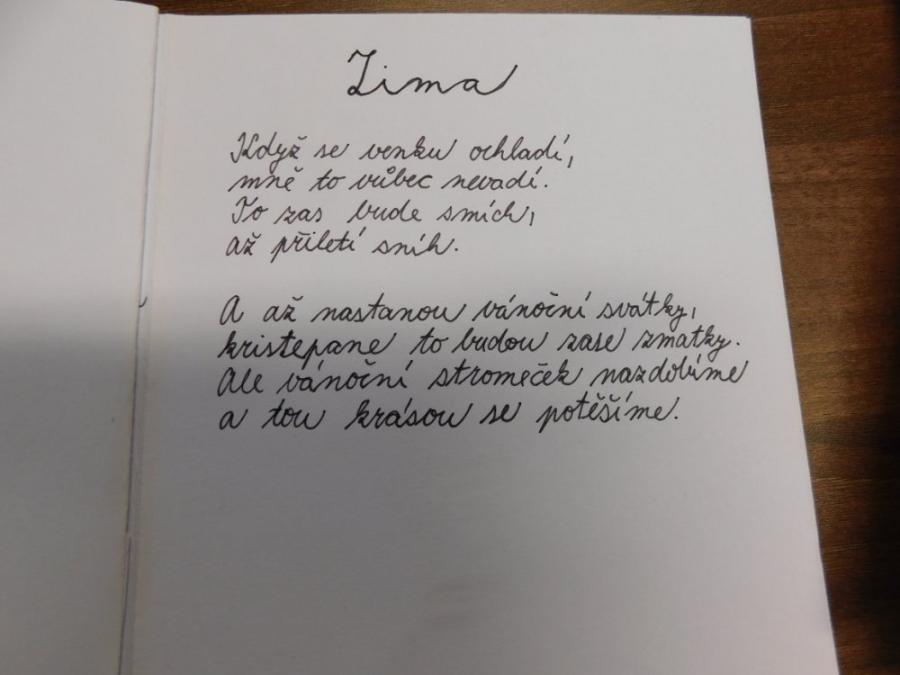 Zima
Když se venku ochladí,
mně to vůbec nevadí.
To zas bude smích,
až přiletí sníh.
A až nastanou vánoční svátky,
kristepane to budou zase zmatky.
Ale vánoční stromeček nazdobíme
a tou krásou se potěšíme.